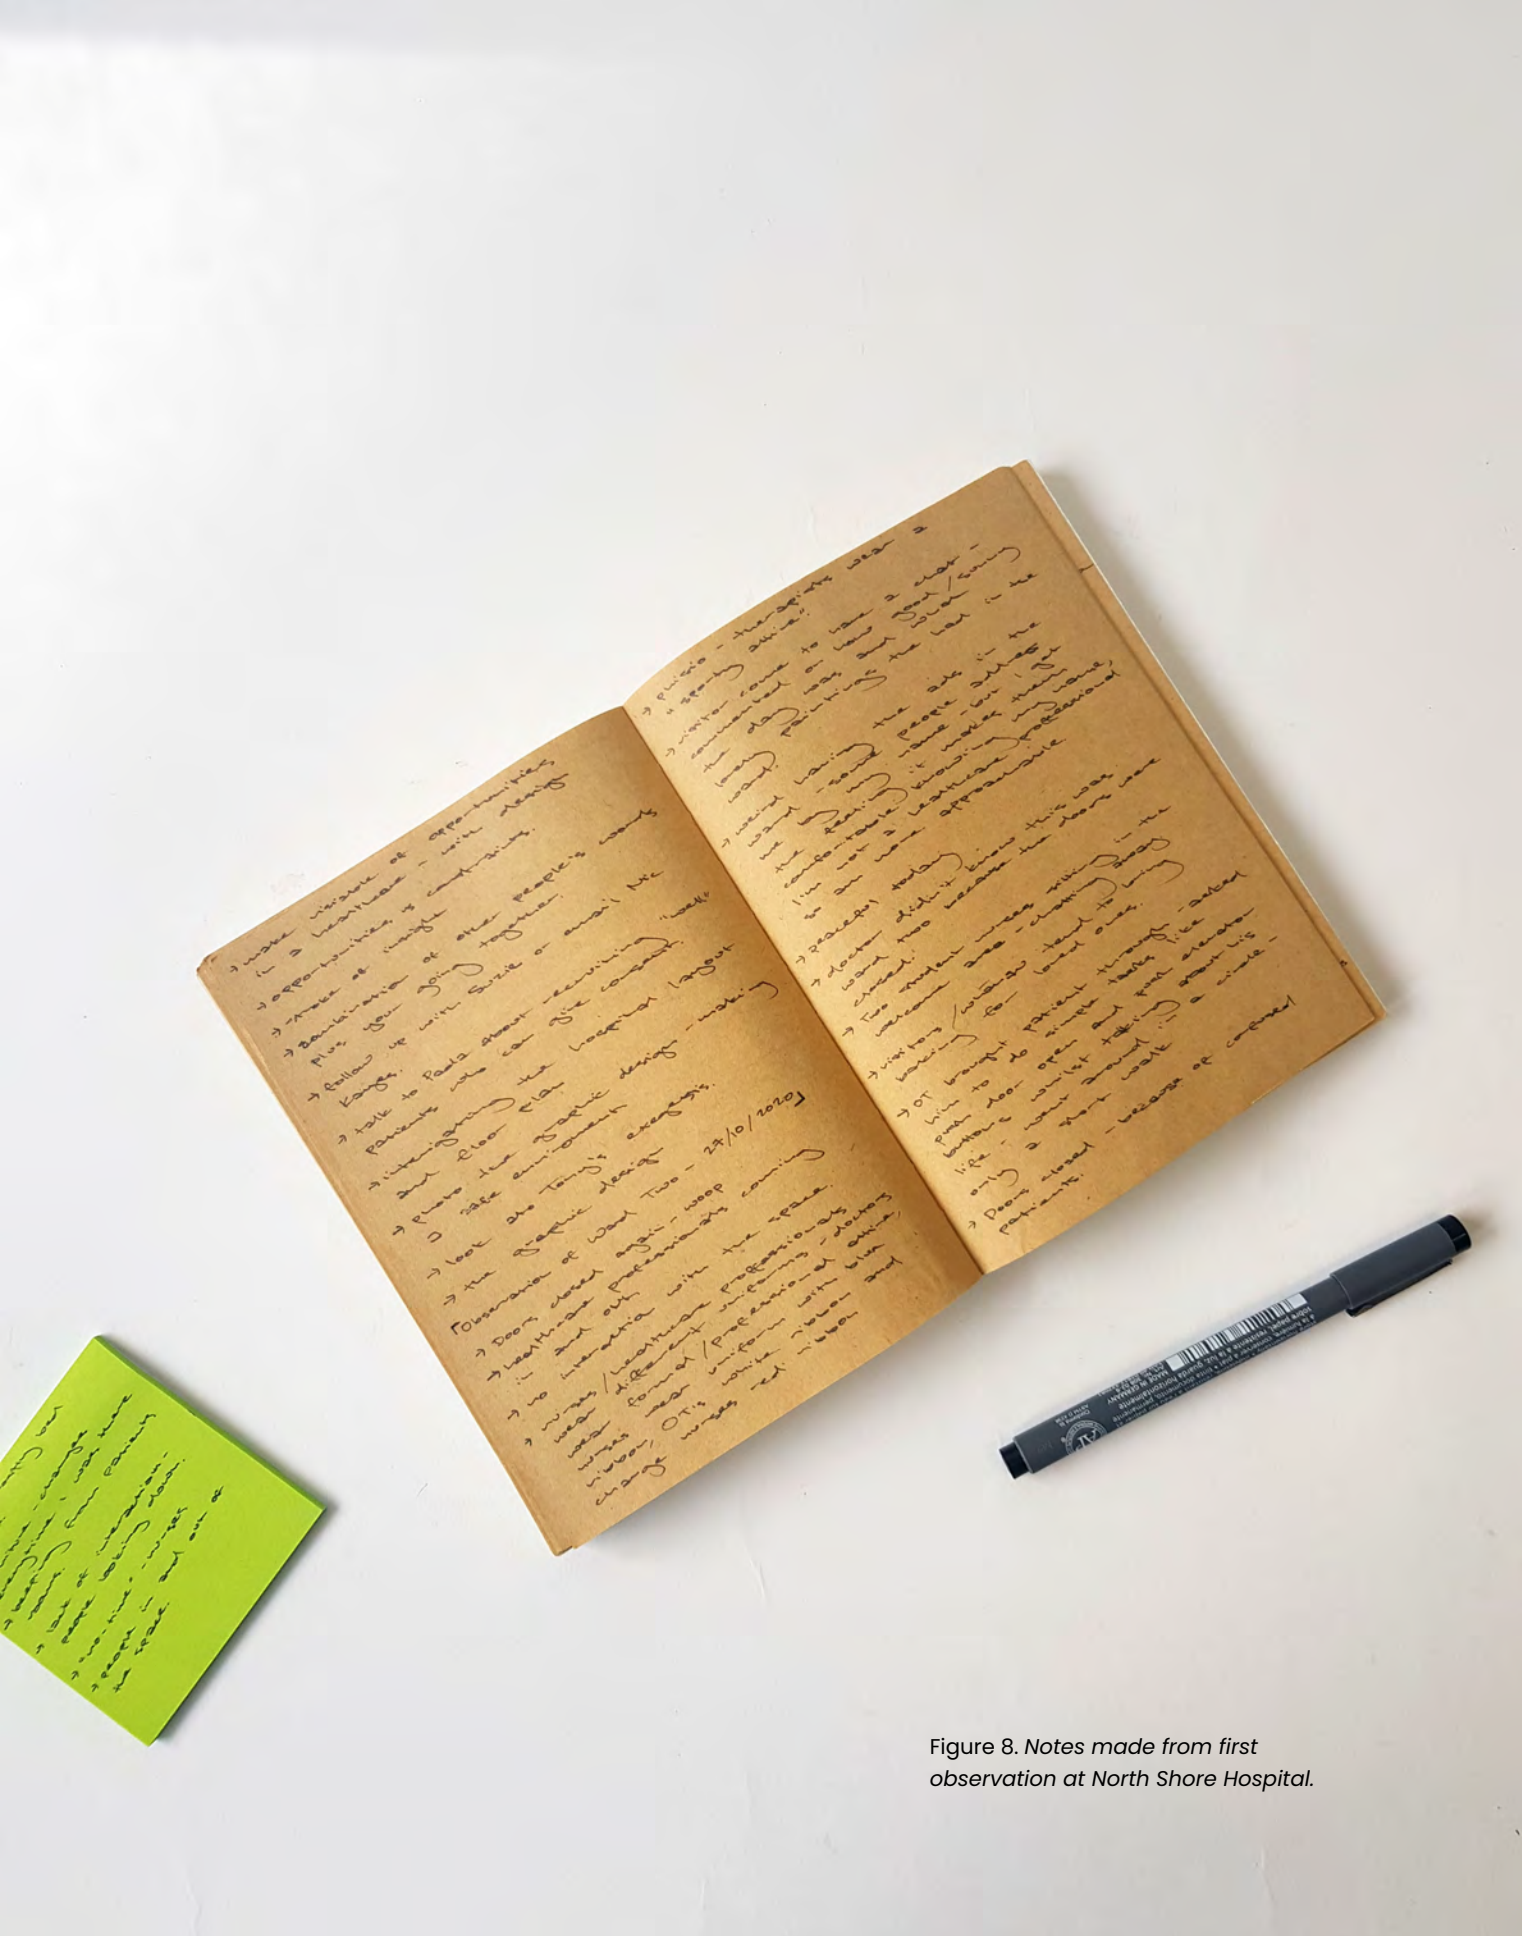 → make visible of opportunities
in a healthcare - with design
→ opportunities, is constraints.
→ make of insight
→ combination of other people's words
plus your going together.
→ follow up with Suzie or email Nic
Kanges.
→ talk to Paola about recruiting "well"
patients who can give consent.
→ interigating the hospital layout
and floor plan
→ photo the graphic design - making
a safe enviroment
→ look ato Tony's exegesis.
→ the graphic design
「Observation of Ward Two - 27/10/2020」
→ Doors closed again - woop
→ healthcare professionals coming
in and out
→ no interaction with the space.
→ nurses/healthcare proffssionals
wear different uniforms - doctors
wear formal/professional attire,
nurses wear uniform with blue
ribbon, OTis white ribbon and
change nurses red ribbon
→ phisio - therapists wear a
"sporty attire".
→ visitor come to have a chat -
commented on how good/sunny
the day was and what
lovely paintings the had in the
ward.
→ weird having the ads in the
ward - some people address
me by my name - but I get
the feeling it makes them
comfortable knowing my name,
I'm not a healthcare professional
so am more approachable
→ peaceful today
→ doctor didn't know this was
ward two because the doors were
closed.
→ Two student nurses sitting in the
welcome area - chatting away
→ visitors/whānau tend to bring
baking for loved ones.
→ OT brought patient through - asked
him to do simple tasks like
push door open and push elevator
buttons whilst talking about his
life - went around in a circle -
only a short walk
→ Doors closed - because of confused
patients.
empty bed
- change
everytime i was there
→ beeping from patients
rooms.
→ lack of interaction -
people looking down.
→ "no-time" - nurses
→ people in and out of
the space.
MADE IN GERMANY
Figure 8. Notes made from first
observation at North Shore Hospital.